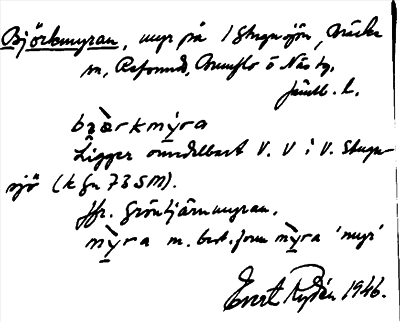 Björkmyran, myr på V Stugusjön, Näcks
sn, Refsunds, Brunflo o Näs tg,
Jämtl. l.
bærkmy̆ra
Ligger omedelbart V. V i V. Stugu-
sjö (k fr 73 SM).
Jfr. Gröntjärnmyran.
my̆ra m. best. form my̆ra 'myr'
Evert Rydén 1946.